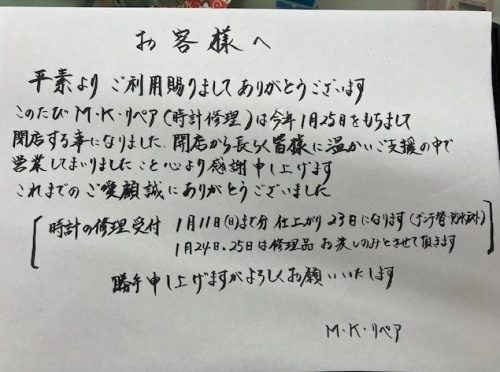 お客様へ
平素より ご利用賜りまして ありがとうございます
このたび M・K・リペア(時計修理)は今年1月25日をもちまして
閉店する事になりました。開店から長らく皆様に温かいご支援の中で
営業してまいりましたこと心より感謝申し上げます
これまでのご愛顧誠にありがとうございました
時計の修理受付 1月11日(日)まで分 仕上がり 23日になります(デンチ替
1月24日、25日は修理品 お渡しのみとさせて頂きます
勝手申し上げますがよろしくお願いいたします
M・K・リペア